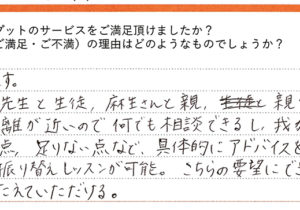 ゲットのサービスをご満足頂けましたか?
ご満足・ご不満）の理由はどのようなものでしょうか?
す。
先生と生徒，麻生さんと親，親
離が近いので何でも相談できるし，我
点，足りない点など、具体的にアドバイスを
振り替えレッスンが可能。こちらの要望にでき
たえていただける。